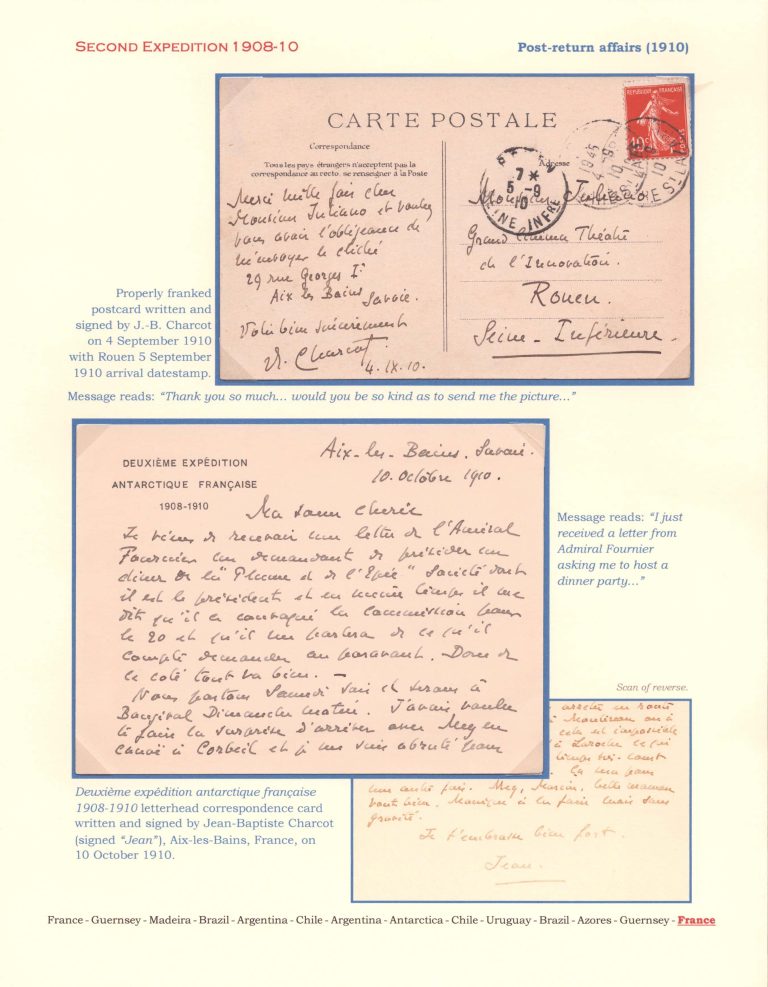 SECOND EXPEDITION 1908-10
Post-return affairs (1910)
CARTE POSTALE
Correspondance
Tous les pays étrangers n'acceptent pas la
correspondance au recto. se renseigner à la Poste
Adresse
REPUBLIQUE FRANÇAISE
10c
POSTES
7*
5-9
10
INE INFRE
Merci mille fois cher
Monsieur Juliano et voulez
vous avoir l'obligeance de
m'envoyer le cliché
29 rue Georges Ier
Aix les Bains Savoie.
Votre bien sincèrement
Charcot
4.IX.10.
Monsieur Juliano
Grand Cinema Théatre
de l'Innovation.
Rouen.
Seine-Inférieure.
Properly franked
postcard written and
signed by J.-B. Charcot
on 4 September 1910
with Rouen 5 September
1910 arrival datestamp.
Message reads: “Thank you so much… would you be so kind as to send me the picture…”
DEUXIÈME EXPÉDITION
ANTARCTIQUE FRANÇAISE
1908-1910
Aix-les-Bains. Savoie.
10. Octobre 1910.
Ma sœur chérie
Je viens de recevoir une lettre de l'Amiral
Fournier me demandant de présider un
diner de la "Plume et de l'Epée" Société dont
il est le président et en même temps il me
dit qu'il a convoqué la Commission pour
le 20 et qu'il me parlera de ce qu'il
compte demander auparavant. Donc de
ce coté tout va bien. —
Nous partons Samedi soir et serons à
Bougival Dimanche matin. J'avais voulu
te faire la surprise d'arriver avec Meg en
canoë à Corbeil et je me suis
Message reads: “I just
received a letter from
Admiral Fournier
asking me to host a
dinner party…”
Scan of reverse.
arrêté en route
à Montereau ou à
cela est impossible
à Laroche ce qui
une autre fois. Meg, Marion, petite maman
vont bien. Monique a un mais sans
gravité.
Je t'embrasse bien fort.
Jean.
Deuxième expédition antarctique française
1908-1910 letterhead correspondence card
written and signed by Jean-Baptiste Charcot
(signed “Jean”), Aix-les-Bains, France, on
10 October 1910.
France - Guernsey - Madeira - Brazil - Argentina - Chile - Argentina - Antarctica - Chile - Uruguay - Brazil - Azores - Guernsey - France